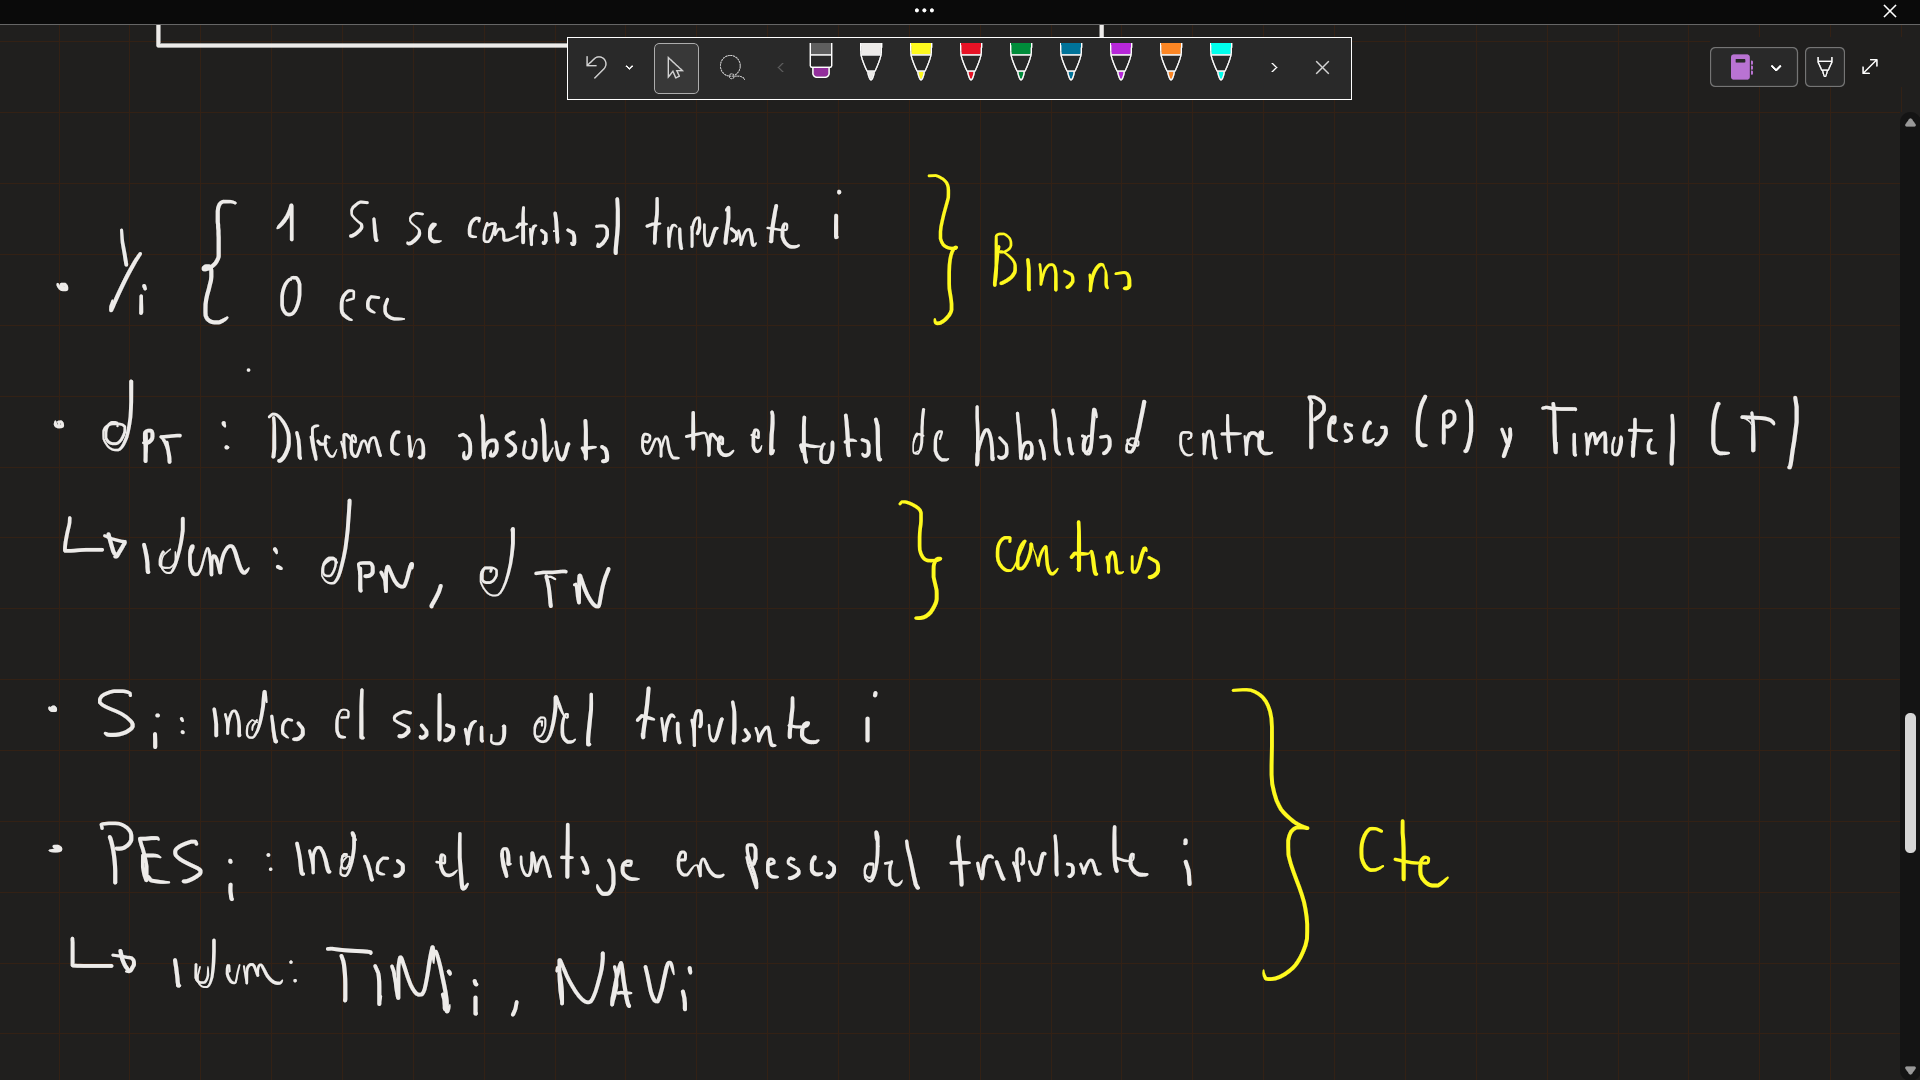 • Yi { 1 Si se contrata al tripulante i } Binaria
0 ecc
• dPT : Diferencia absoluta entre el total de habilidad entre Pesca (P) y Timotel (T)
↳ idem : dPN, dTN } continua
• Si : indica el salario del tripulante i
• PESi : Indica el puntaje en pesca del tripulante i } Cte
↳ idem : TIMi, NAVi